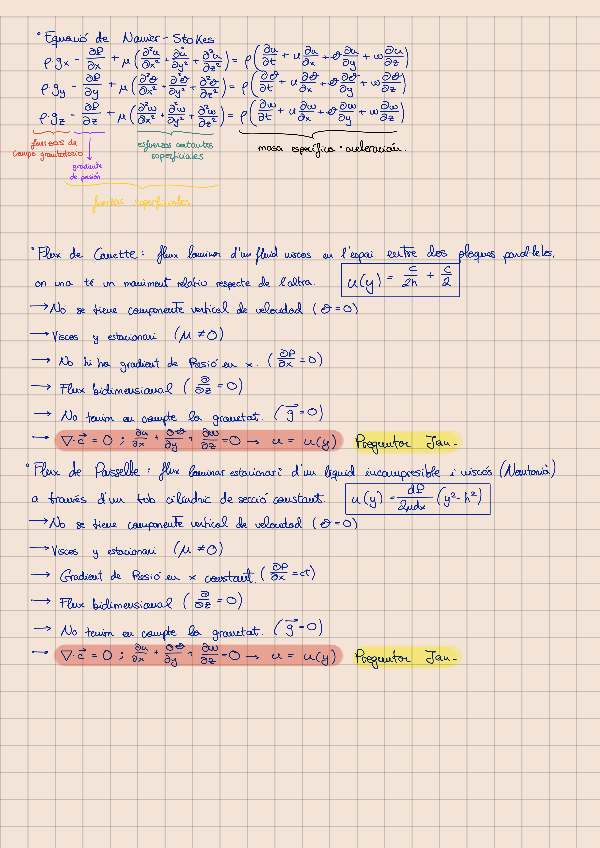 ° Equació de Navier-Stokes
ρ·gx - ∂P/∂x + μ(∂²u/∂x² + ∂²u/∂y² + ∂²u/∂z²) = ρ(∂u/∂t + u ∂u/∂x + ϑ ∂u/∂y + w ∂u/∂z)
ρ·gy - ∂P/∂y + μ(∂²ϑ/∂x² + ∂²ϑ/∂y² + ∂²ϑ/∂z²) = ρ(∂ϑ/∂t + u ∂ϑ/∂x + ϑ ∂ϑ/∂y + w ∂ϑ/∂z)
ρ·gz - ∂P/∂z + μ(∂²w/∂x² + ∂²w/∂y² + ∂²w/∂z²) = ρ(∂w/∂t + u ∂w/∂x + ϑ ∂w/∂y + w ∂w/∂z)
fuerzas de campo gravitatorio
gradiente de presión
esfuerzos cortantes superficiales
masa específica · aceleración.
fuerzas superficiales
° Flux de Couette: flux laminar d'un fluid viscos en l'espai entre dos plaques paral·leles,
on una té un moviment relatiu respecte de l'altra. u(y) = c/2h + c/2
→ No se tiene componente vertical de velocidad (ϑ=0)
→ Viscos y estacionari (μ≠0)
→ No hi ha gradient de Pressió en x. (∂P/∂x = 0)
→ Flux bidimensional (∂/∂z = 0)
→ No tenim en compte la gravetat. (g⃗=0)
→ ∇·c⃗ = 0 ; ∂u/∂x + ∂ϑ/∂y + ∂w/∂z = 0 → u = u(y) Preguntar Jan-
° Flux de Poiselle: flux laminar estacionari d'un líquid incompresible i viscós (Newtonià)
a través d'un tub cilíndric de secció constant. u(y) = dP/2μdx (y²-h²)
→ No se tiene componente vertical de velocidad (ϑ=0)
→ Viscos y estacionari (μ≠0)
→ Gradient de Pressió en x constant. (∂P/∂x = ct)
→ Flux bidimensional (∂/∂z = 0)
→ No tenim en compte la gravetat. (g⃗=0)
→ ∇·c⃗ = 0 ; ∂u/∂x + ∂ϑ/∂y + ∂w/∂z = 0 → u = u(y) Preguntar Jan-